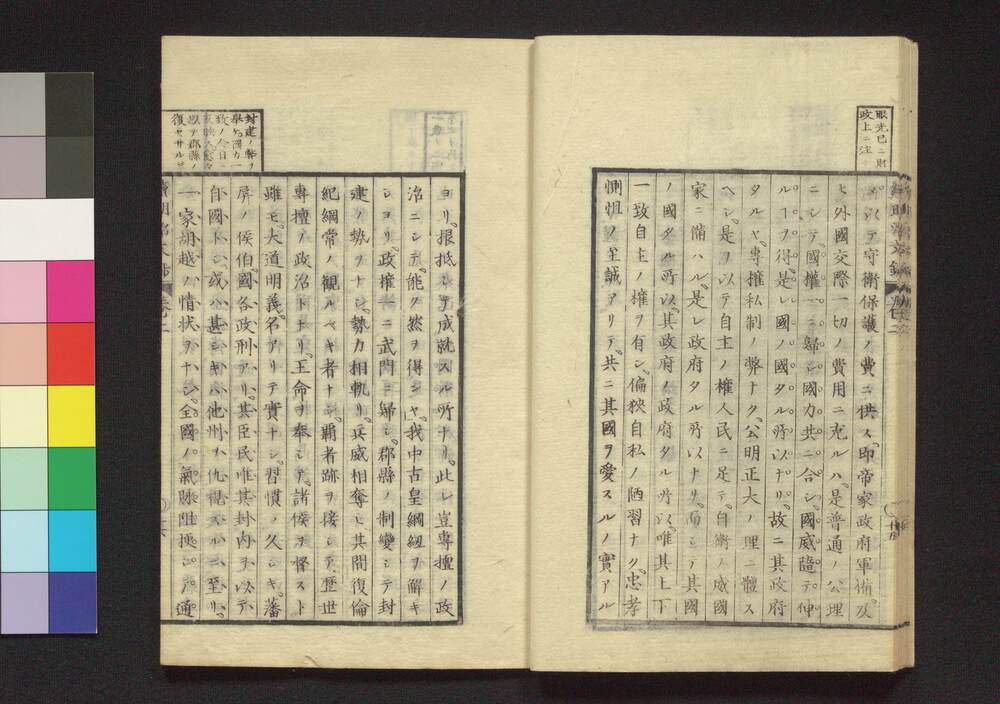 眼光已ニ財
政上ニ注
以テ守衛保護ノ費ニ供ス即帝家政府軍備及
ヒ外國交際一切ノ費用ニ充ルハ是普通ノ公理
ニシテ國權一ニ歸シ國力共ニ合シ國威隨テ伸
ルーヲ得是レ國ノ國タル所以ナリ故ニ其政府
タルヤ專擅私制ノ弊ナク公明正大ノ理ニ體ス
ヘシ是ヲ以テ自主ノ權人民ニ足テ自衛ノ威國
家ニ備ハル是レ政府タル所以ナリ而シテ其國
ノ國タル所以其政府ノ政府タル所以唯其上下
一致自主ノ權ヲ有シ偏狹自私ノ陋習ナク忠孝
惻怛ノ至誠アリテ共ニ其國ヲ愛スルノ實アル
封建ノ弊ヲ
ヨリ根抵シテ成就スル所ナリ此レ豈專擅ノ政
治ニシテ能ク然ヲ得ンヤ我中古皇綱紐ヲ解キ
シヨリ政權一ニ武門ニ歸シ郡縣ノ制變シテ封
建ノ勢ヲナシ勢力相軋リ兵威相奪ヒ其間復倫
紀綱常ノ觀ルヘキ者ナシ覇者跡ヲ接シテ歴世
專擅ノ政治トナリ王命ヲ奉シテ諸侯ヲ督スト
雖モ大道明義名アリテ實ナシ習慣ノ久シキ藩
屏ノ侯伯國各政刑アリ其臣民唯其封内ヲ以テ
自國トシ或ハ甚シキハ他州ハ仇視スルニ至リ
一家胡越ノ情状ヲナシ全國ノ氣脉阻㧞シテ通